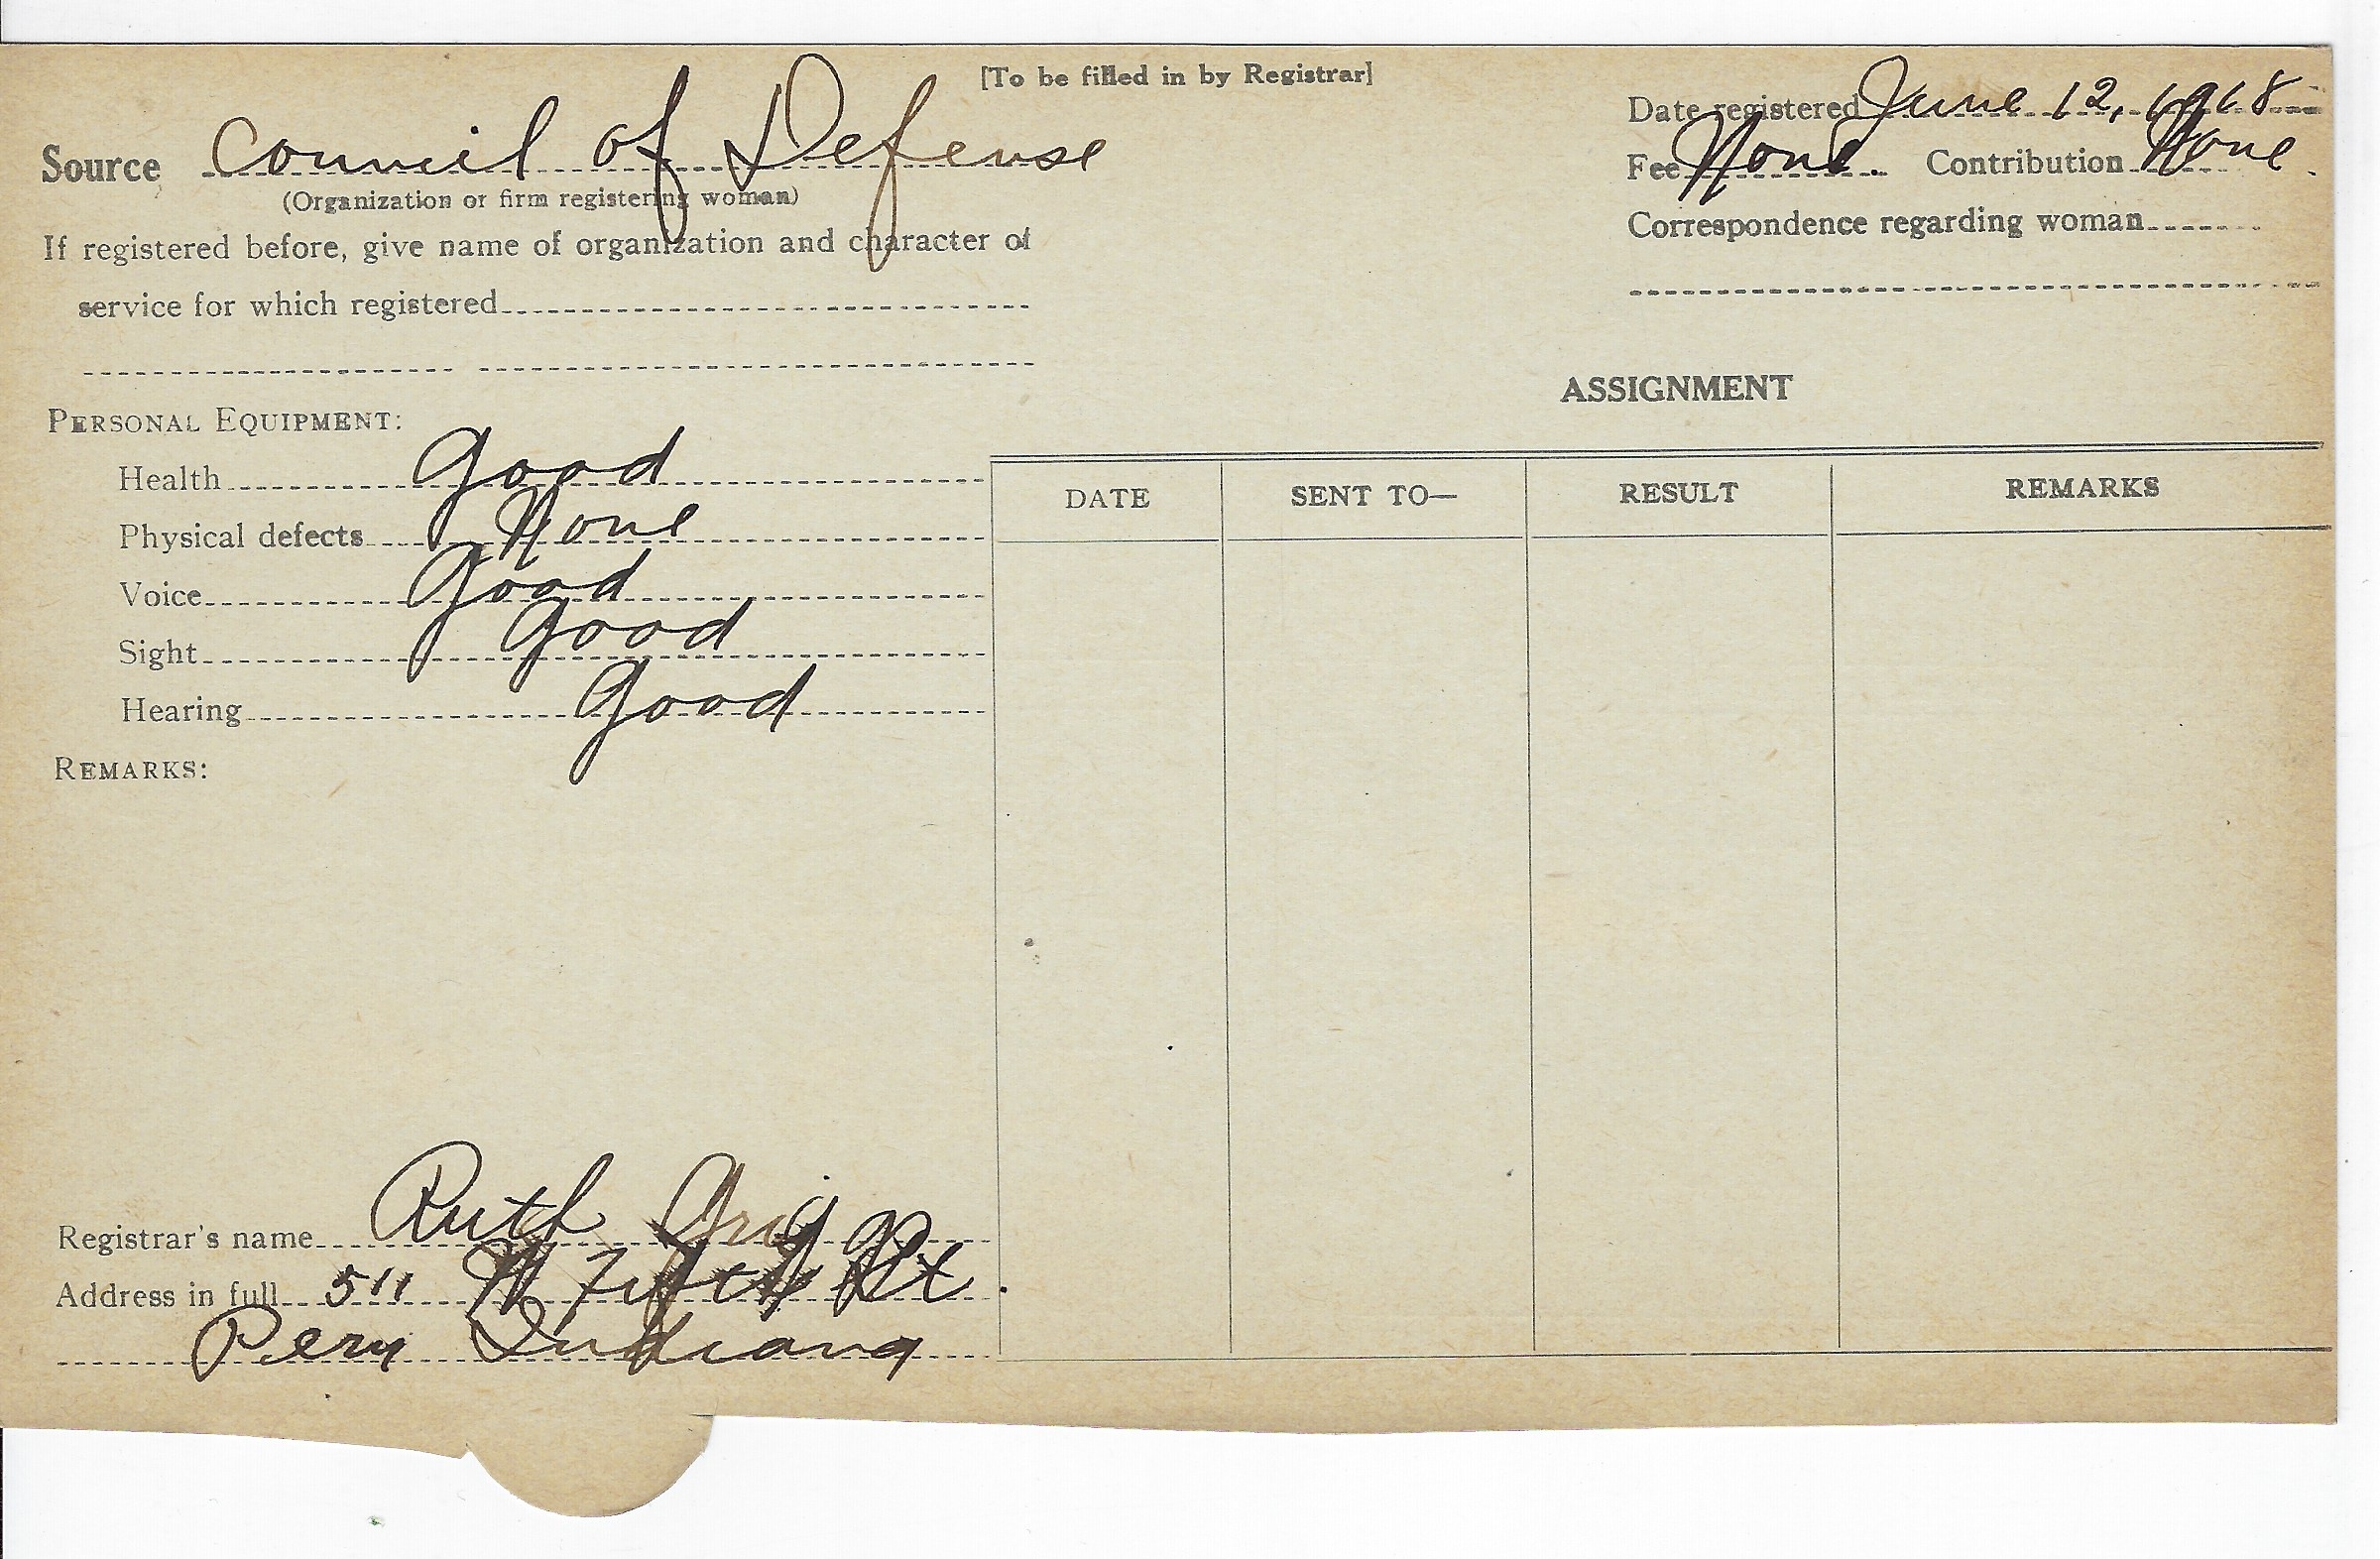 [To be filled in by Registrar]
Source Council of Defense
(Organization or firm registering woman)
If registered before, give name of organization and character of
service for which registered
Date registered June 12, 1918
Fee None. Contribution None
Correspondence regarding woman
PERSONAL EQUIPMENT:
Health Good
Physical defects None
Voice Good
Sight Good
Hearing Good
REMARKS:
ASSIGNMENT
DATE SENT TO— RESULT REMARKS
Registrar's name Ruth
Address in full 511 W Fifth St.
Peru Indiana